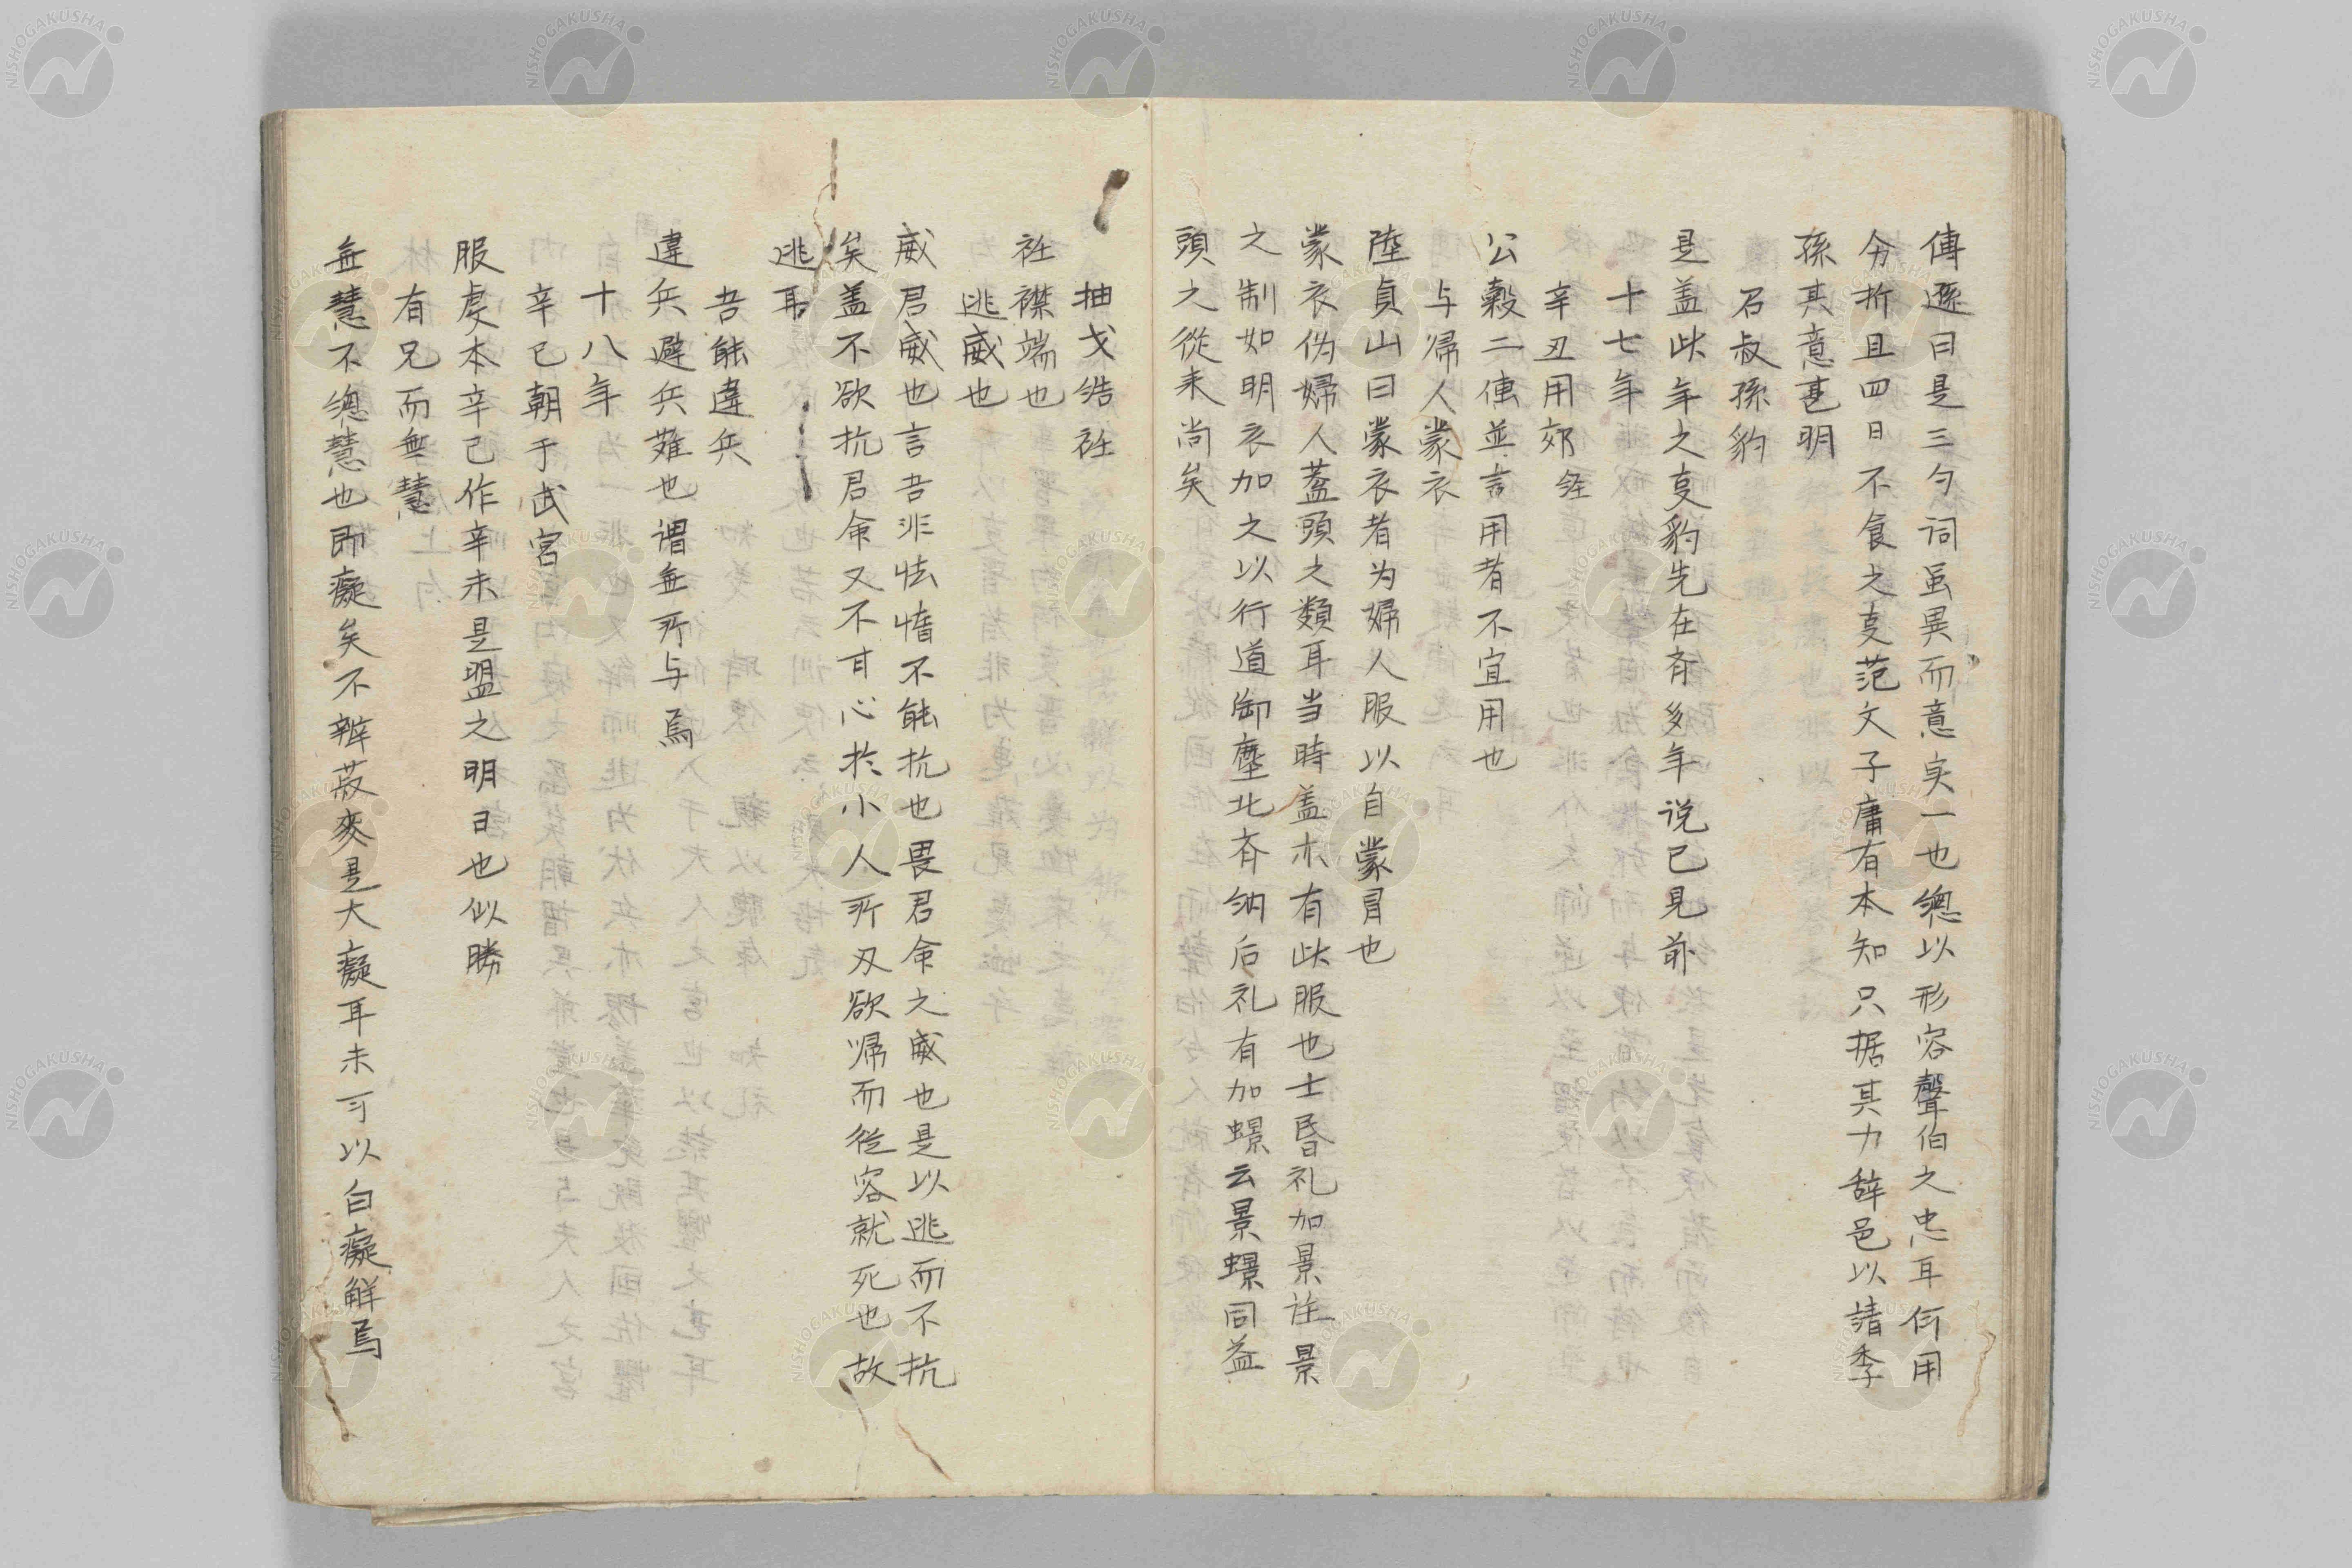 傳遜曰是三句詞虽異而意实一也總以形容聲伯之忠耳何用
分折且四日不食之叓范文子庸有本知只据其力辞邑以請季
孫其意甚明
召叔孫豹
是盖此年之叓豹先在斉多年说已見前
十七年
辛丑用郊 経
公穀二傳並言用者不宜用也
与帰人蒙衣
陸貞山曰蒙衣者为婦人服以自蒙冒也
蒙衣伪婦人蓋頭之類耳当時盖亦有此服也士昏礼加景注景
之制如明衣加之以行道御塵北斉纳后礼有加㬌云景㬌同益
頭之從来尚矣
抽戈结衽
衽襟端也
逃威也
威君威也言吾非怯惰不能抗也畏君命之威也是以逃而不抗
矣盖不欲抗君命又不甘心扵小人所刃欲帰而従容就死也故
逃耳
吾能違兵
違兵避兵难也謂無所与焉
十八年
辛巳朝于武宮
服虔本辛已作辛未是盟之明日也似勝
有兄而無慧
無慧不總慧也即癡矣不辨菽麥是大癡耳未可以白癡解焉
NISHOGAKUSHA